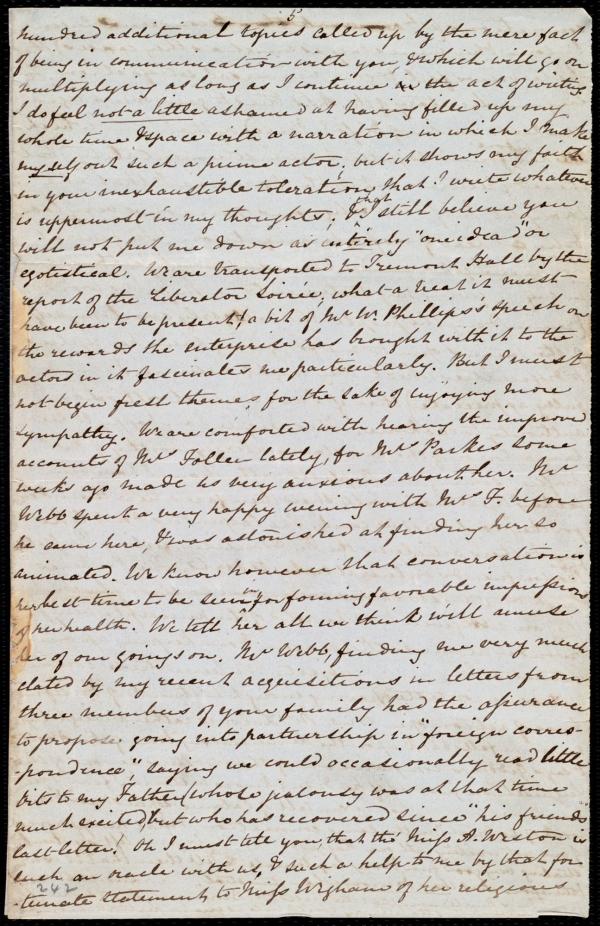 5
hundred additional topics called up by the mere fact
of being in communication with you, & which will go on
multiplying as long as I continue in the act of writing
I do feel not a little ashamed at having filled up my
whole time & space with a narration in which I make
myself out such a prime actor; but it shows my faith
in your inexhaustible toleration that I write whatever
is uppermost in my thoughts; & that still believe you
will not put me down as entirely "one idea'd" or
egotistical. We are transported to Tremont Hall by the
report of the Liberator Soirée, what a treat it must
have been to be present! a bit of Mr W. Phillips's speech on
the rewards the enterprise has brought with it to the
actors in it fascinates me particularly. But I must
not begin fresh themes, for the sake of enjoying more
sympathy. We are comforted with hearing the improved
accounts of Mrs Follen lately, for Mrs Parkes some
weeks ago made us very anxious about her. Mr
Webb spent a very happy evening with Mrs F. before
he came here, & was astonished at finding her so
animated. We know however that conversation is
her best time to be seen "for forming favorable impressions"
of her health. We tell her all we think will amuse
her of our goings on. Mr Webb, finding me very much
elated by my recent acquisitions in letters from
three members of your family had the assurance
to propose going into partnership in "foreign corres-
-pondence," saying we could occasionally read little
bits to my Father (whose jealousy was at that time
much excited, but who has recovered since "his friends'"
last letter! Oh I must tell you, that tho' Miss A. Weston is
such an oracle with us, & such a help to me by that for-
-tunate statement to Miss Wigham of her religious
242